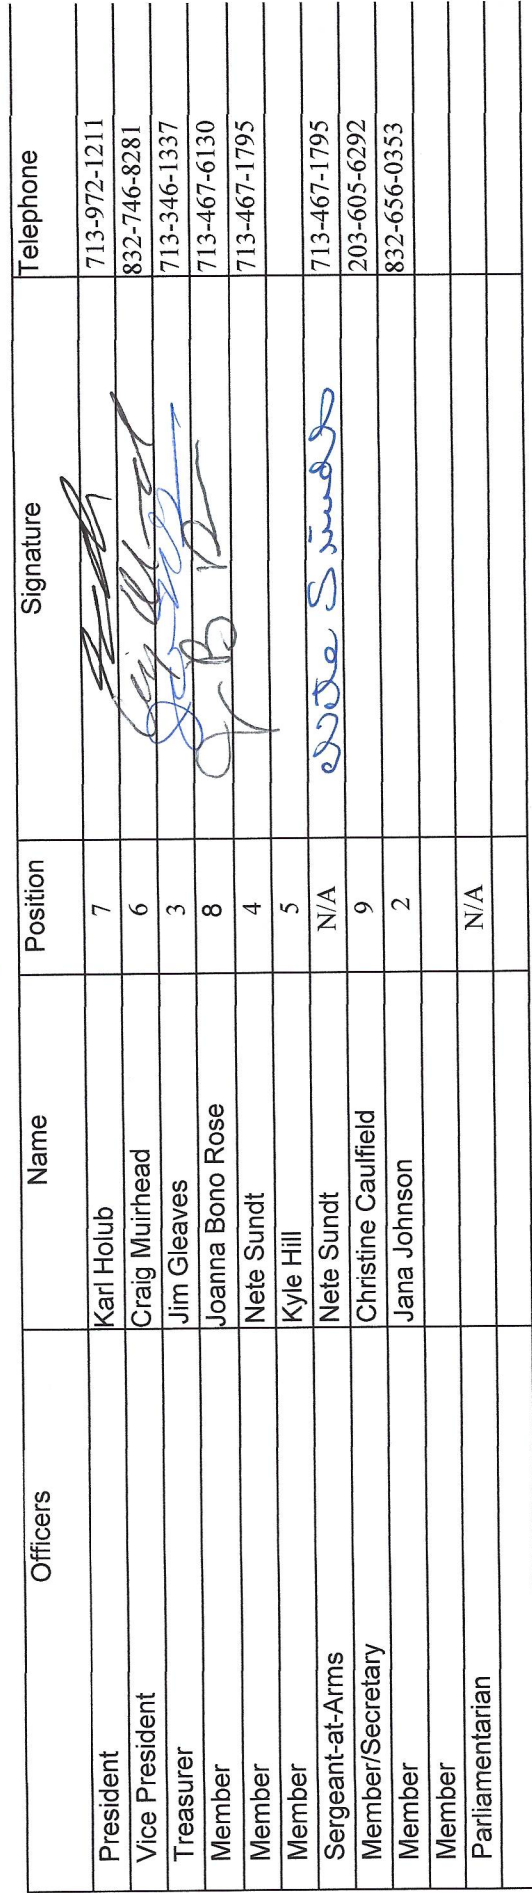 Officers Name Position Signature Telephone
President Karl Holub 7 713-972-1211
Vice President Craig Muirhead 6 832-746-8281
Treasurer Jim Gleaves 3 713-346-1337
Member Joanna Bono Rose 8 713-467-6130
Member Nete Sundt 4 713-467-1795
Member Kyle Hill 5
Sergeant-at-Arms Nete Sundt N/A 713-467-1795
Member/Secretary Christine Caulfield 9 203-605-6292
Member Jana Johnson 2 832-656-0353
Member
Parliamentarian N/A